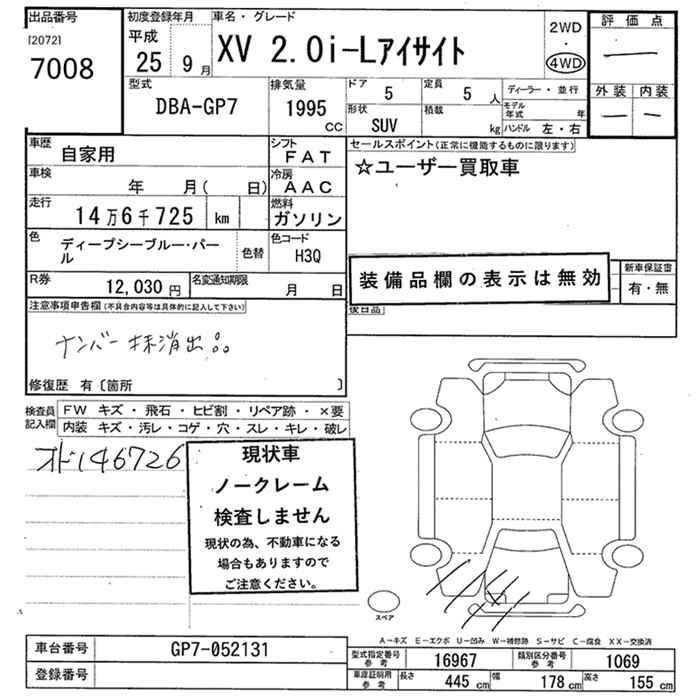 出品番号
[2072]
7008
初度登録年月
平成
25 9月
車名・グレード
XV 2.0i-Lアイサイト
2WD
・
4WD
評価点
—
外装 内装
— —
型式
DBA-GP7
排気量
1995
cc
ドア
5
定員
5 人
形状
SUV
積載
kg
ディーラー・並行
モデル年式 年
ハンドル 左・右
車歴
自家用
シフト
FAT
車検
年 月( 日)
冷房
AAC
走行
14万6千725 km
燃料
ガソリン
色
ディープシーブルー・パール
色替
色コード
H3Q
R券
12,030 円
名変通知期限
月 日
セールスポイント(正常に機能するものに限ります)
☆ユーザー買取車
装備品欄の表示は無効
新車保証書
有・無
後日品
注意事項申告欄(不具合内容等は具体的に記入して下さい)
ナンバー抹消出品
修復歴 有〔箇所 〕
検査員記入欄
FW キズ・飛石・ヒビ割・リペア跡・×要
内装 キズ・汚レ・コゲ・穴・スレ・キレ・破レ
オド146726
現状車
ノークレーム
検査しません
現状の為、不動車になる
場合もありますので
ご注意ください。
スペア
A-キズ E-エクボ U-凹み W-補修跡 S-サビ C-腐食 XX-交換済
車台番号
GP7-052131
登録番号
型式指定番号参考
16967
類別区分番号参考
1069
車庫証明用参考
長さ 445 cm
幅 178 cm
高さ 155 cm